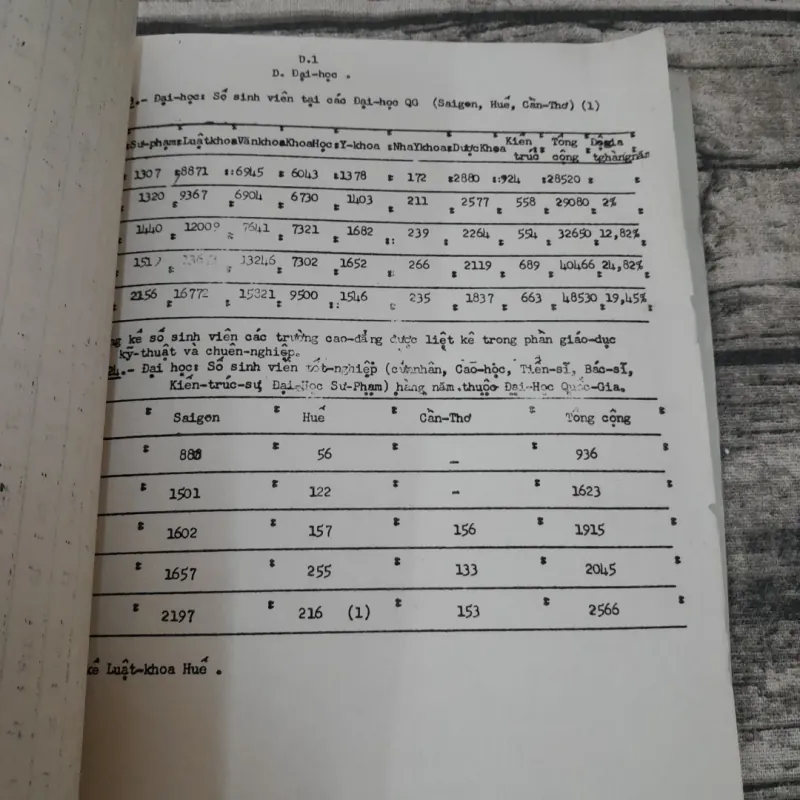 D.1
D. Đại-học .
.- Đại-học: Số sinh viên tại các Đại-học QG (Saigon, Huế, Cần-Thơ) (1)
Sư-phạm Luật.khoa Vănkhoa KhoaHọc Y-khoa NhaYkhoa DượcKhoa Kiến trúc Tổng cộng
1307 8871 6945 6043 1378 172 2880 924 28520
1320 9367 6904 6730 1403 211 2577 558 29080 2%
1440 12009 7641 7321 1682 239 2264 554 32650 12,82%
13246 7302 1652 266 2119 689 40466 24,82%
2156 16772 15821 9500 1546 235 1837 663 48530 19,45%
kể số sinh viên các trường cao-đẳng được liệt kê trong phần giáo-dục
kỹ-thuật và chuên-nghiệp.
.- Đại học: Số sinh viên tốt-nghiệp (cử-nhân, Cao-học, Tiến-sĩ, Bác-sĩ,
Kiến-trúc-sư, Đại-Học Sư-Phạm) hàng năm thuộc Đại-Học Quốc-Gia.
Saigon Huế Cần-Thơ Tổng cộng
56 - 936
1501 122 - 1623
1602 157 156 1915
1657 255 133 2045
2197 216 (1) 153 2566
kể Luật-khoa Huế .